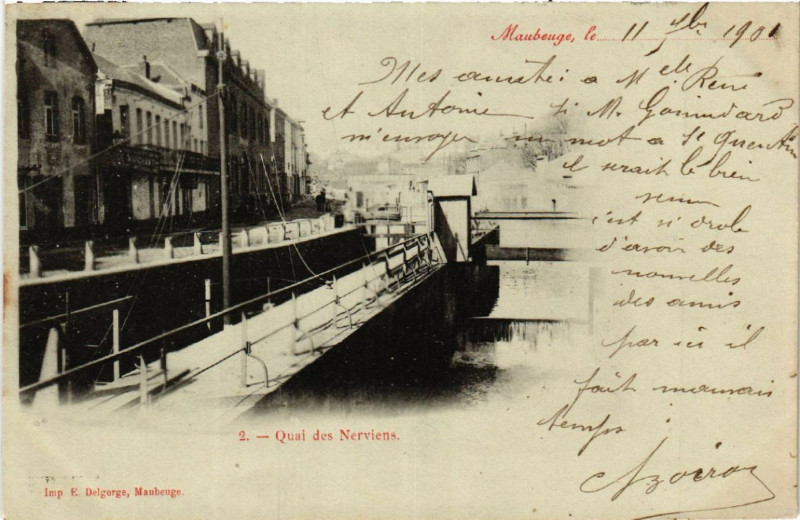 Maubeuge, le 11 7bre 1901
Mes amitiés a Melle René
et Antoine si M.
m'envoyer un mot a St Quentin
il serait le bien
venu
c'est si drole
d'avoir des
nouvelles
des amis
par ici il
fait mauvais
temps
2. — Quai des Nerviens.
Imp. E. Delgorge, Maubeuge.